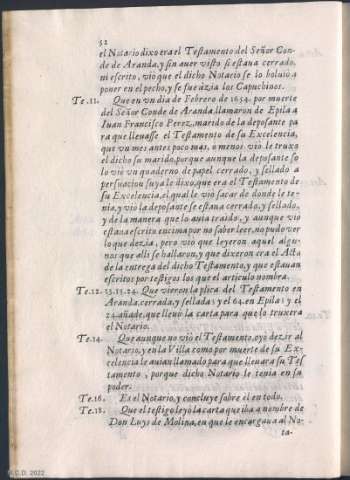 52
el Notario dixo era el Testamento del Señor Con-
de de Aranda, y sin auer visto si estaua cerrado,
ni escrito, vió que el dicho Notario se lo boluió a
poner en el pecho, y se fue àzia los Capuchinos.
Te. 11. Que en vn dia de Febrero de 1654. por muerte
del Señor Conde de Aranda, llamaron de Epila a
Iuan Francisco Perez, marido de la deposante pa
ra que lleuasse el Testamento de su Excelencia,
que vn mes antes poco mas, o menos vió le truxo
el dicho su marido, porque aunque la deposante so
lo vió vn quaderno de papel cerrado, y sellado a
persuasion suya le dixo, que era el Testamento de
su Excelencia, el qual le vió sacar de donde le te-
nia, y vió la deposante se estaua cerrado, y sellado,
y de la manera que lo auia traido, y aunque vió
estaua escrito encima por no saber leer, no pudo ver
lo que dezia, pero vió que leyeron aquel algu-
nos que alli se hallaron, y que dixeron era el Acto
de la entrega del dicho Testamento, y que estauan
escritos por testigos los que el articulo nombra.
Te. 12. 13. 11. 24. Que vieron la plica del Testamento en
Aranda, cerrada, y sellada: y el 64. en Epila: y el
24. añade, que lleuó la carta para que lo truxera
el Notario.
Te. 14. Que aunque no vió el Testamento, oyó dezir al
Notario, y en la Villa como por muerte de su Ex-
celencia le auian llamado para que lleuara su Tes
tamento, porque dicho Notario le tenia en su
poder.
Te. 16. Es el Notario, y concluye sobre el en todo.
Te. 18. Que el testigo leyó la carta que iba a nombre de
Don Luys de Molina, en que le encargaua al No-
ta-
C.D. 2022